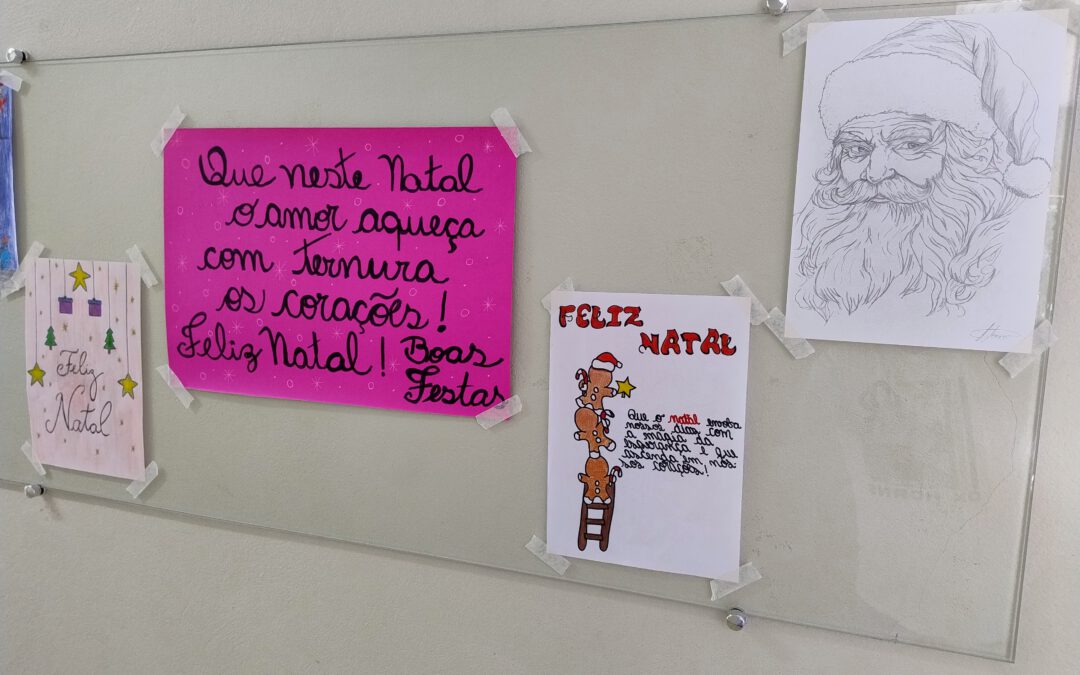 Que neste Natal
o amor aqueça
com ternura
os corações!
Feliz Natal! Boas
Festas
Feliz
Natal
FELIZ
NATAL
Que o natal envolva
nossos dias com
a magia da
esperança e que
ascenda em nos-
sos corações!